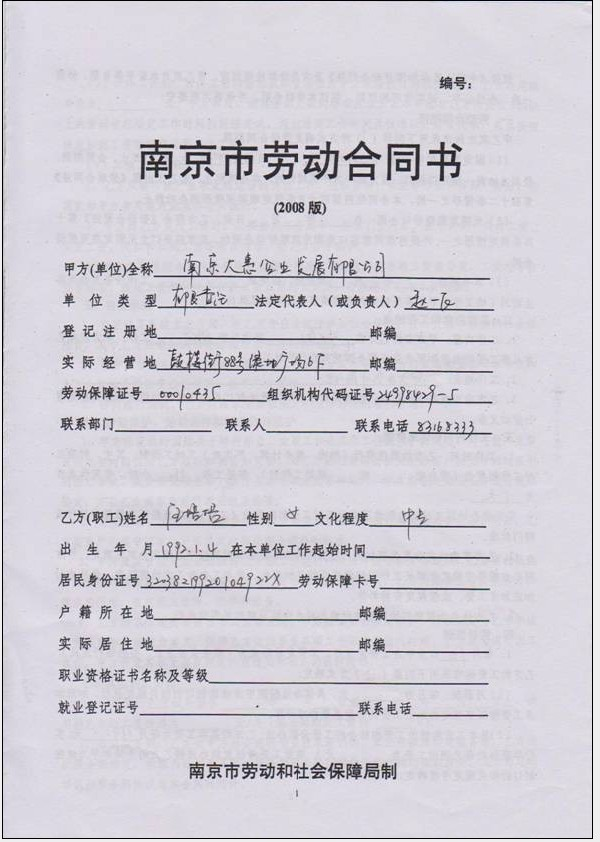 编号：
南京市劳动合同书
(2008 版)
甲方(单位)全称 南京大惠企业发展有限公司
单 位 类 型 有限责任 法定代表人（或负责人）
登 记 注 册 地 邮编
实 际 经 营 地 鼓楼街88号绿地广场 邮编
劳动保障证号 00010435 组织机构代码证号 24998429-5
联系部门 联系人 联系电话 83168333
乙方(职工)姓名 性别 女 文化程度 中专
出 生 年 月 1992.1.4 在本单位工作起始时间
居民身份证号 劳动保障卡号
户 籍 所 在 地 邮编
实 际 居 住 地 邮编
职业资格证书名称及等级
就业登记证号 联系电话
南京市劳动和社会保障局制
1